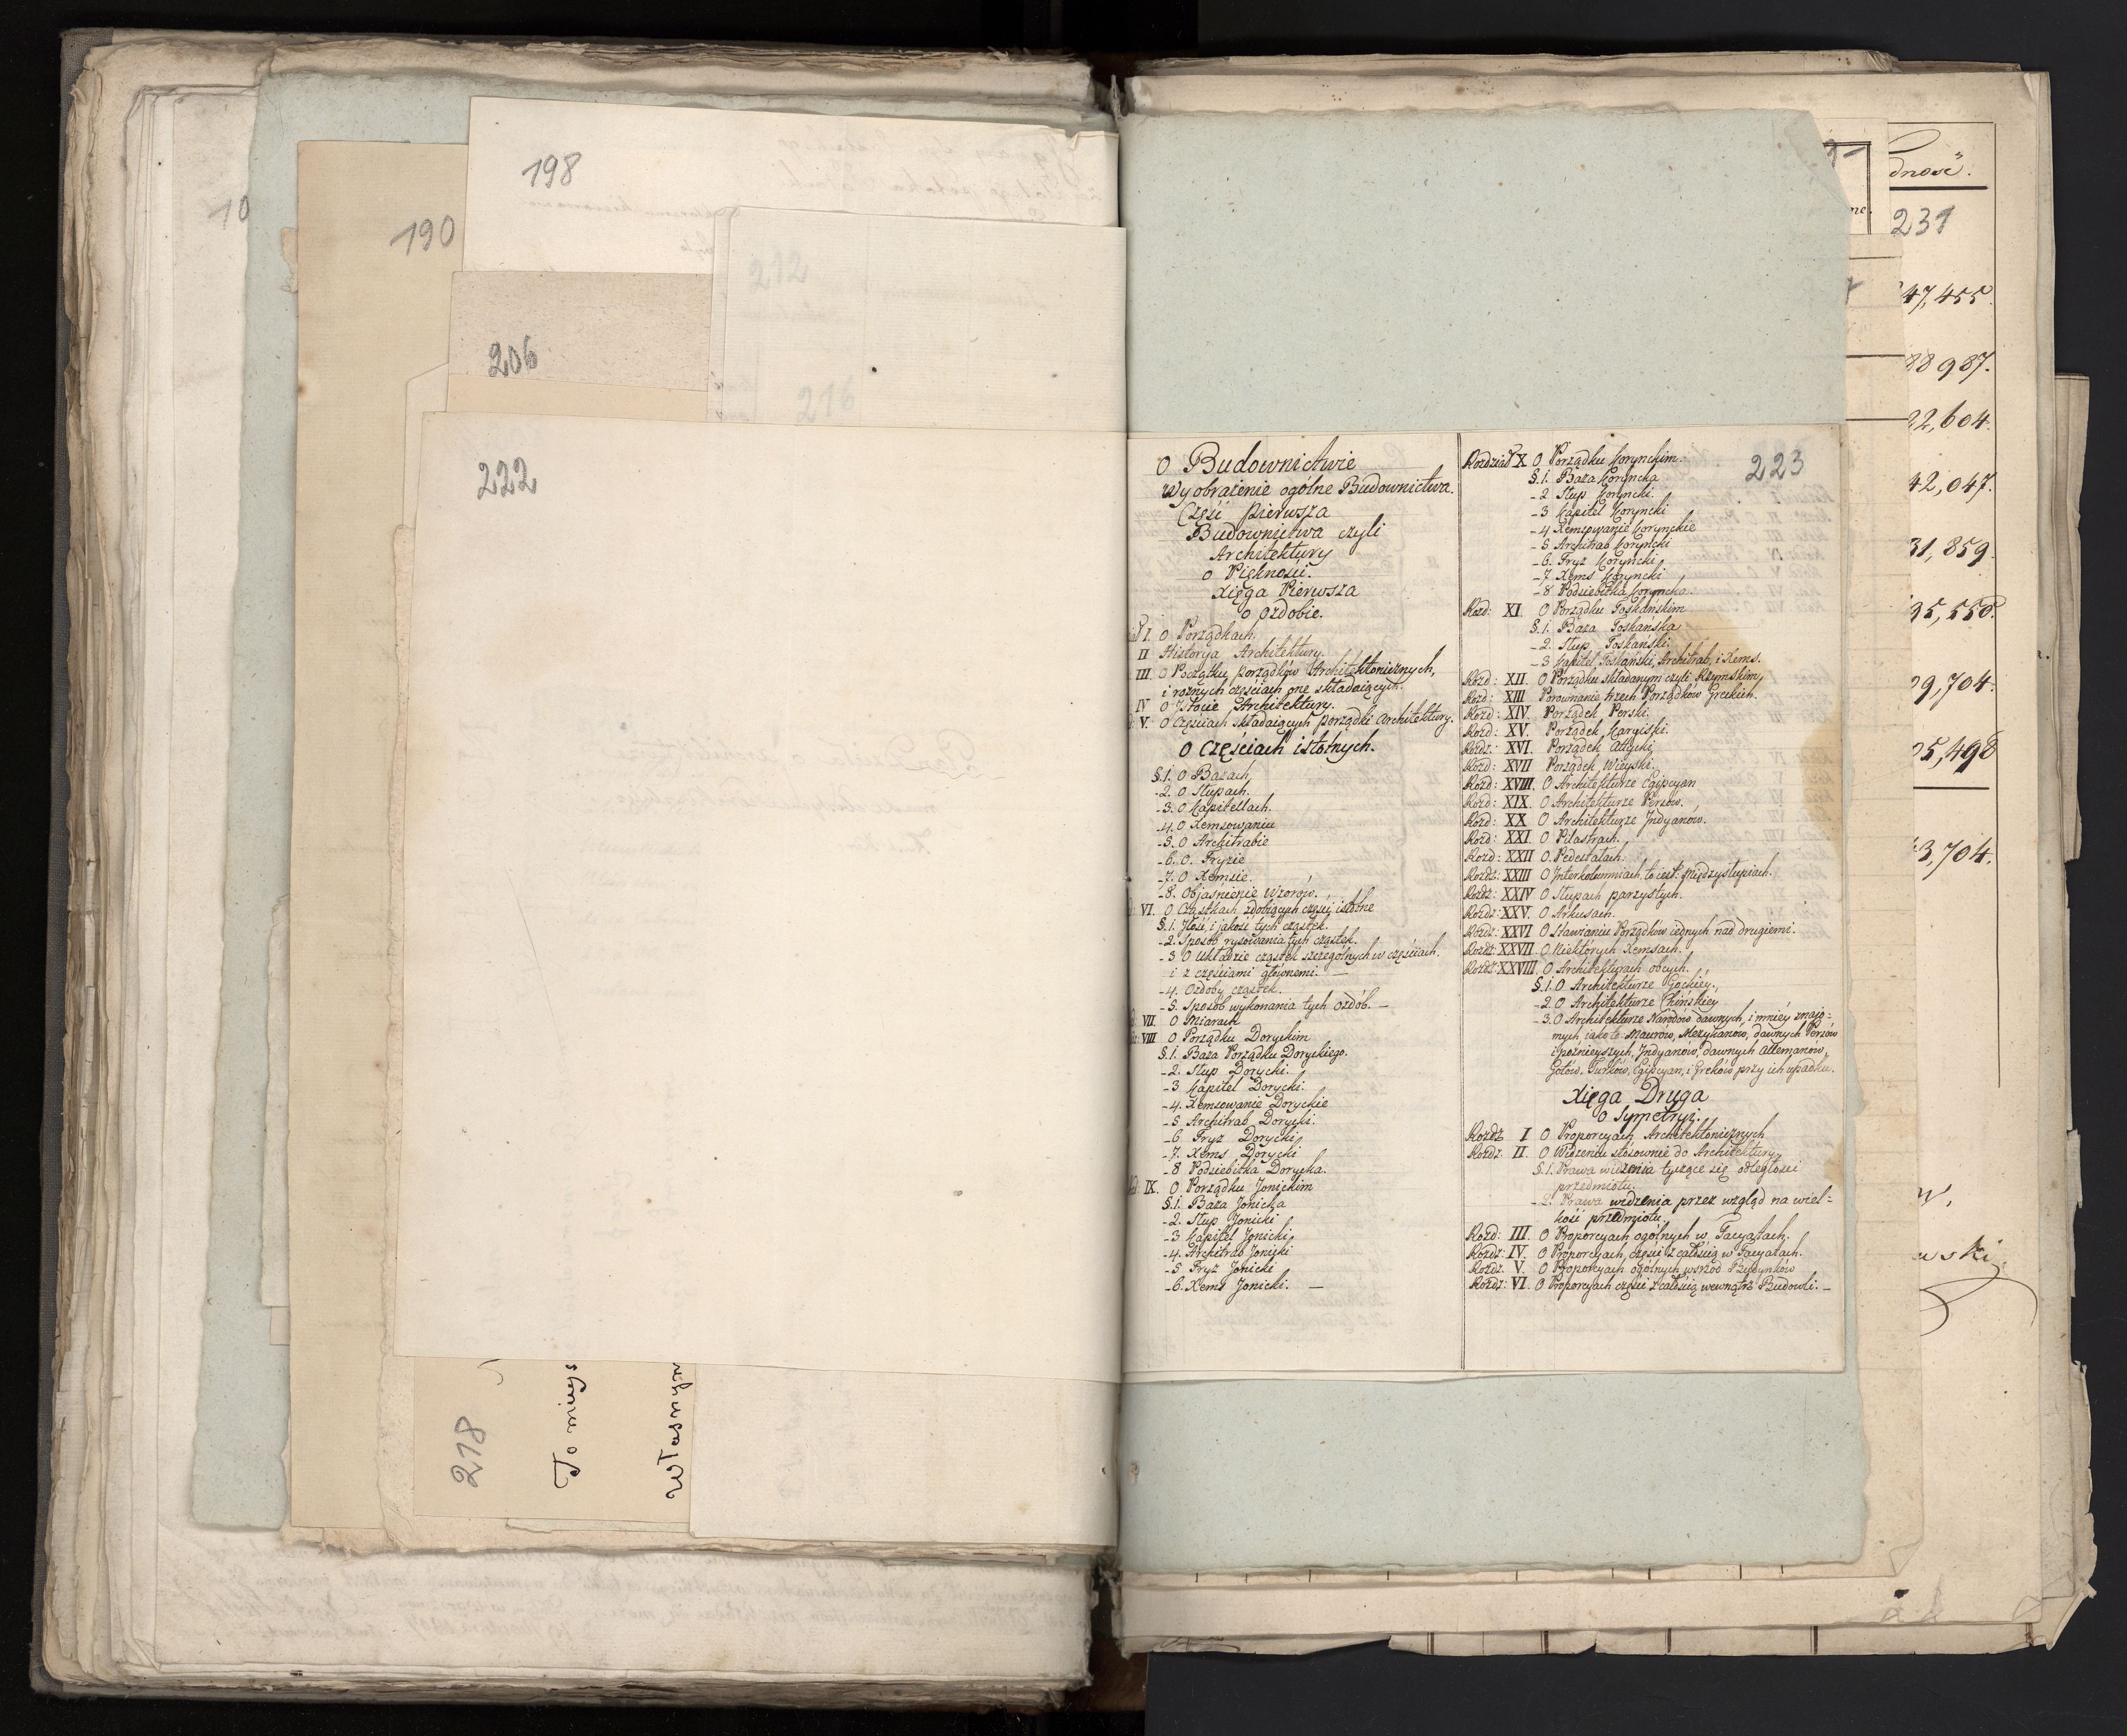 198
190
10
212
206
216
222
218
To miejs
Własnym
O Budownictwie
Wyobrażenie ogólne Budownictwa.
Część pierwsza
Budownictwa czyli
Architektury
o Piękności.
Xięga Pierwsza
o ozdobie.
I. O Porządkach.
II Historya Architektury.
III. O Początku porządków Architektonicznych,
i rożnych częściach one składaiących.
IV O Istocie Architektury.
V. O Częściach składaiących porządki Architektury.
O Częściach istotnych.
§.1. O Bazach
-2. O Słupach.
-3. O Kapitellach.
-4. O Xemsowaniu
-5. O Architrabie
-6. O. Fryzie
-7. O Xemsie.
-8. Objaśnienie Wzorów.
VI. O Cząstkach zdobiących części istotne
§.1. Ilość i jakość tych cząstek.
-2. Sposób rysowania tych cząstek.
-3 O układzie cząstek szczególnych w częściach.
i z częściami głównemi. —
-4. Ozdoby cząstek.
-5. Sposób wykonania tych ozdób. —
VII. O Miarach
VIII O Porządku Doryckim
§.1. Baza Porządku Doryckiego.
-2. Słup Dorycki.
-3 Kapitel Dorycki.
-4. Xemsowanie Doryckie
-5 Architrab Dorycki.
-6 Fryz Dorycki
-7. Xems Dorycki
-8 Podsiebitka Dorycka.
IX. O Porządku Jonickim
§.1. Baza Jonicka
-2. Słup Jonicki
-3 Kapitel Jonicki
-4. Architrab Jonicki
-5 Fryz Jonicki
-6. Xems Jonicki. —
223
Rozdział X O Porządku Korynckim.
§.1. Baza Koryncka
-2 Słup Koryncki.
-3 Kapitel Koryncki
-4 Xemsowanie Korynckie
-5. Architrab Koryncki
-6. Fryz Koryncki
-7. Xems Koryncki
-8 Podsiebitka Koryncka.
Rozd: XI. O Porządku Toskańskim
§.1. Baza Toskańska
-2. Słup Toskański.
-3 Kapitel Toskański, Architrab, i Xems.
Rozd: XII. O Porządku składanym czyli Rzymskim
Rozd: XIII Porownanie trzech Porządkow Greckich.
Rozd: XIV. Porządek Perski.
Rozd: XV. Porządek Karyiski.
Rozdz: XVI. Porządek Attycki
Rozd: XVII Porządek Wieyski.
Rozd: XVIII. O Architekturze Egipcyan
Rozd: XIX. O Architekturze Persów.
Rozd: XX O Architekturze Jndyanów.
Rozd: XXI O Pilastrach.
Rozd: XXII O. Pedestalach.
Rozdz: XXIII O Jnterkolumniach to iest: Międzysłupiach.
Rozdz: XXIV O Słupach parzystych.
Rozdz: XXV. O Arkusach.
Rozdz: XXVI O Stawianiu Porządków iednych nad drugiemi.
Rozdz: XXVII. O Niektórych Xemsach.
Rozdz: XXVIII. O Architekturach obcych.
§.1. O Architekturze Gockiey.
-2. O Architekturze Chińskiey
-3. O Architekturze Narodów dawnych, i mniey znaio=
mych iako to Maurów, Mexykanów, dawnych Persów
i poznieyszych, Jndyanów, dawnych Allemanów,
Gotów, Turków, Egipcyan, i Greków przy ich upadku.
Xięga Druga
O Symetryi.
Rozdz I O Proporcyach Architektonicznych
Rozdz: II. O Widzeniu stosownie do Architektury
§.1. Prawa widzenia tyczące się odległości
przedmiotu.
-2. Prawa widzenia przez wzgląd na wiel=
kość przedmiotu.
Rozd: III. O Proporcyach ogólnych w Facyatach.
Rozdz: IV. O Proporcyach, części z całością w Facyatach.
Rozdz. V. O Proporcyach ogólnych wsrzod Budynków
Rozdz: VI. O Proporcyach części z całością wewnątrz Budowli. —
dność.
ne.
231
47,455.
88 987.
22,604.
42,047.
31,859.
35,558.
09,704.
05,498
3,704.
w.
wski